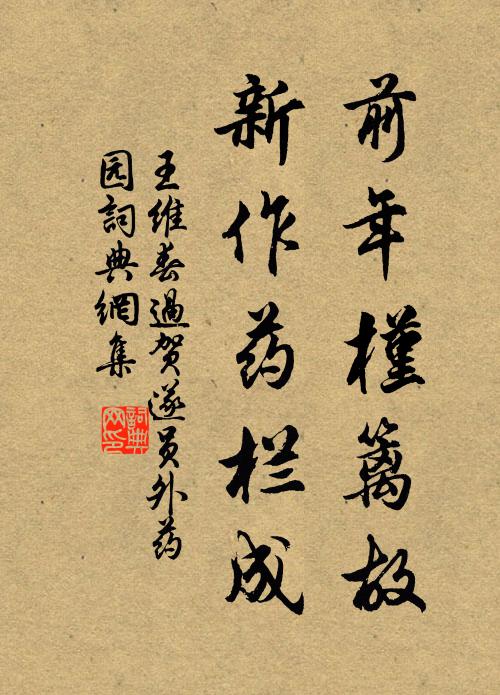 前年槿篱故
新作药栏成
王维春過贺遂员外药
园詞典網集
詞典网印